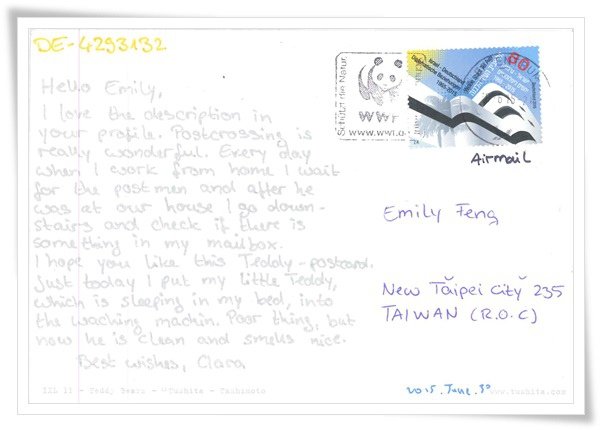 DE-4293132
Hello Emily,
I love the description in
your profile. Postcrossing is
really wonderful. Every day
when I work from home I wait
for the postmen and after he
was at our house I go down-
stairs and check if there is
something in my mailbox.
I hope you like this Teddy-postcard.
Just today I put my little Teddy,
which is sleeping in my bed, into
the waching machin. Poor thing, but
now he is clean and smells nice.
Best wishes, Clara
Schützt die Natur
WWF
www.wwf.d
Israel - Deutschland
Diplomatische Beziehungen
1965-2015
80
Airmail
Emily Feng
New Taipei City 235
TAIWAN (R.O.C)
2015. June. 30
IZL 11 - Teddy Bears - ©Tushita - Tashimoto
www.tushita.com